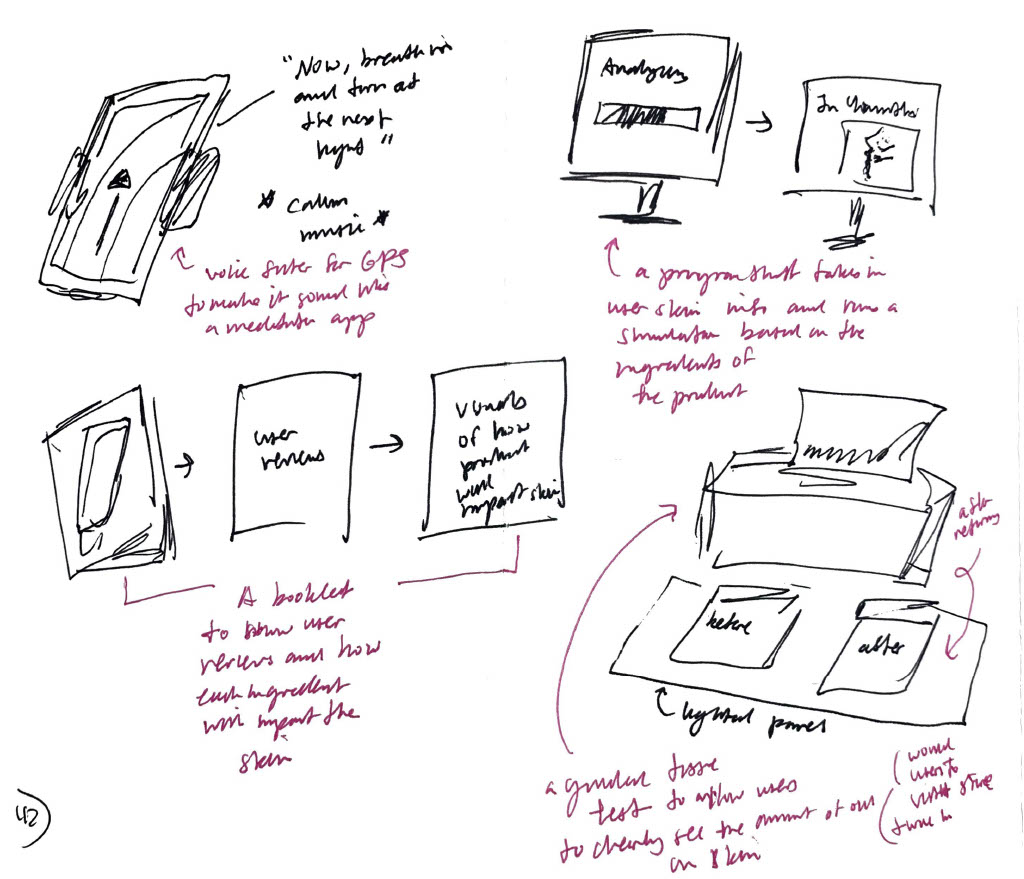 "Now, breath in
and turn at
the next
light"
* calm
music *
voice filter for GPS
to make it sound like
a meditation app
Analyzing
In 4 months
a program that takes in
user skin info and run a
simulation based on the
ingredients of
the product
user
reviews
visuals
of how
product
will
impact skin
A booklet
to show user
reviews and how
each ingredient
will impact the
skin
after
before
after
lighted panel
a
tissue
test to allow users
to clearly see the amount of oil
on skin
would
users to
visit store
twice
42